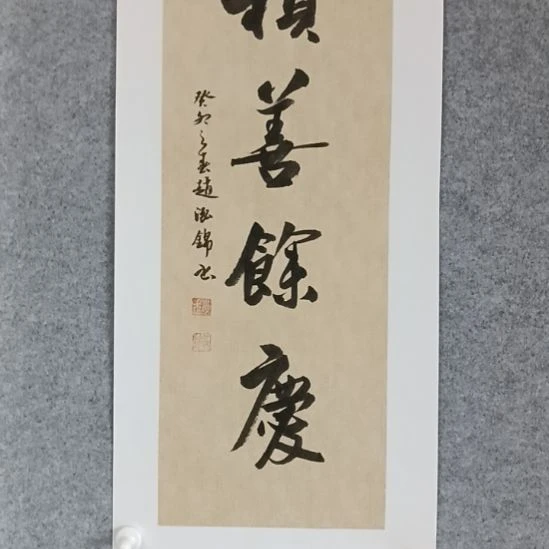 積善餘慶
癸卯之春趙鴻錦书